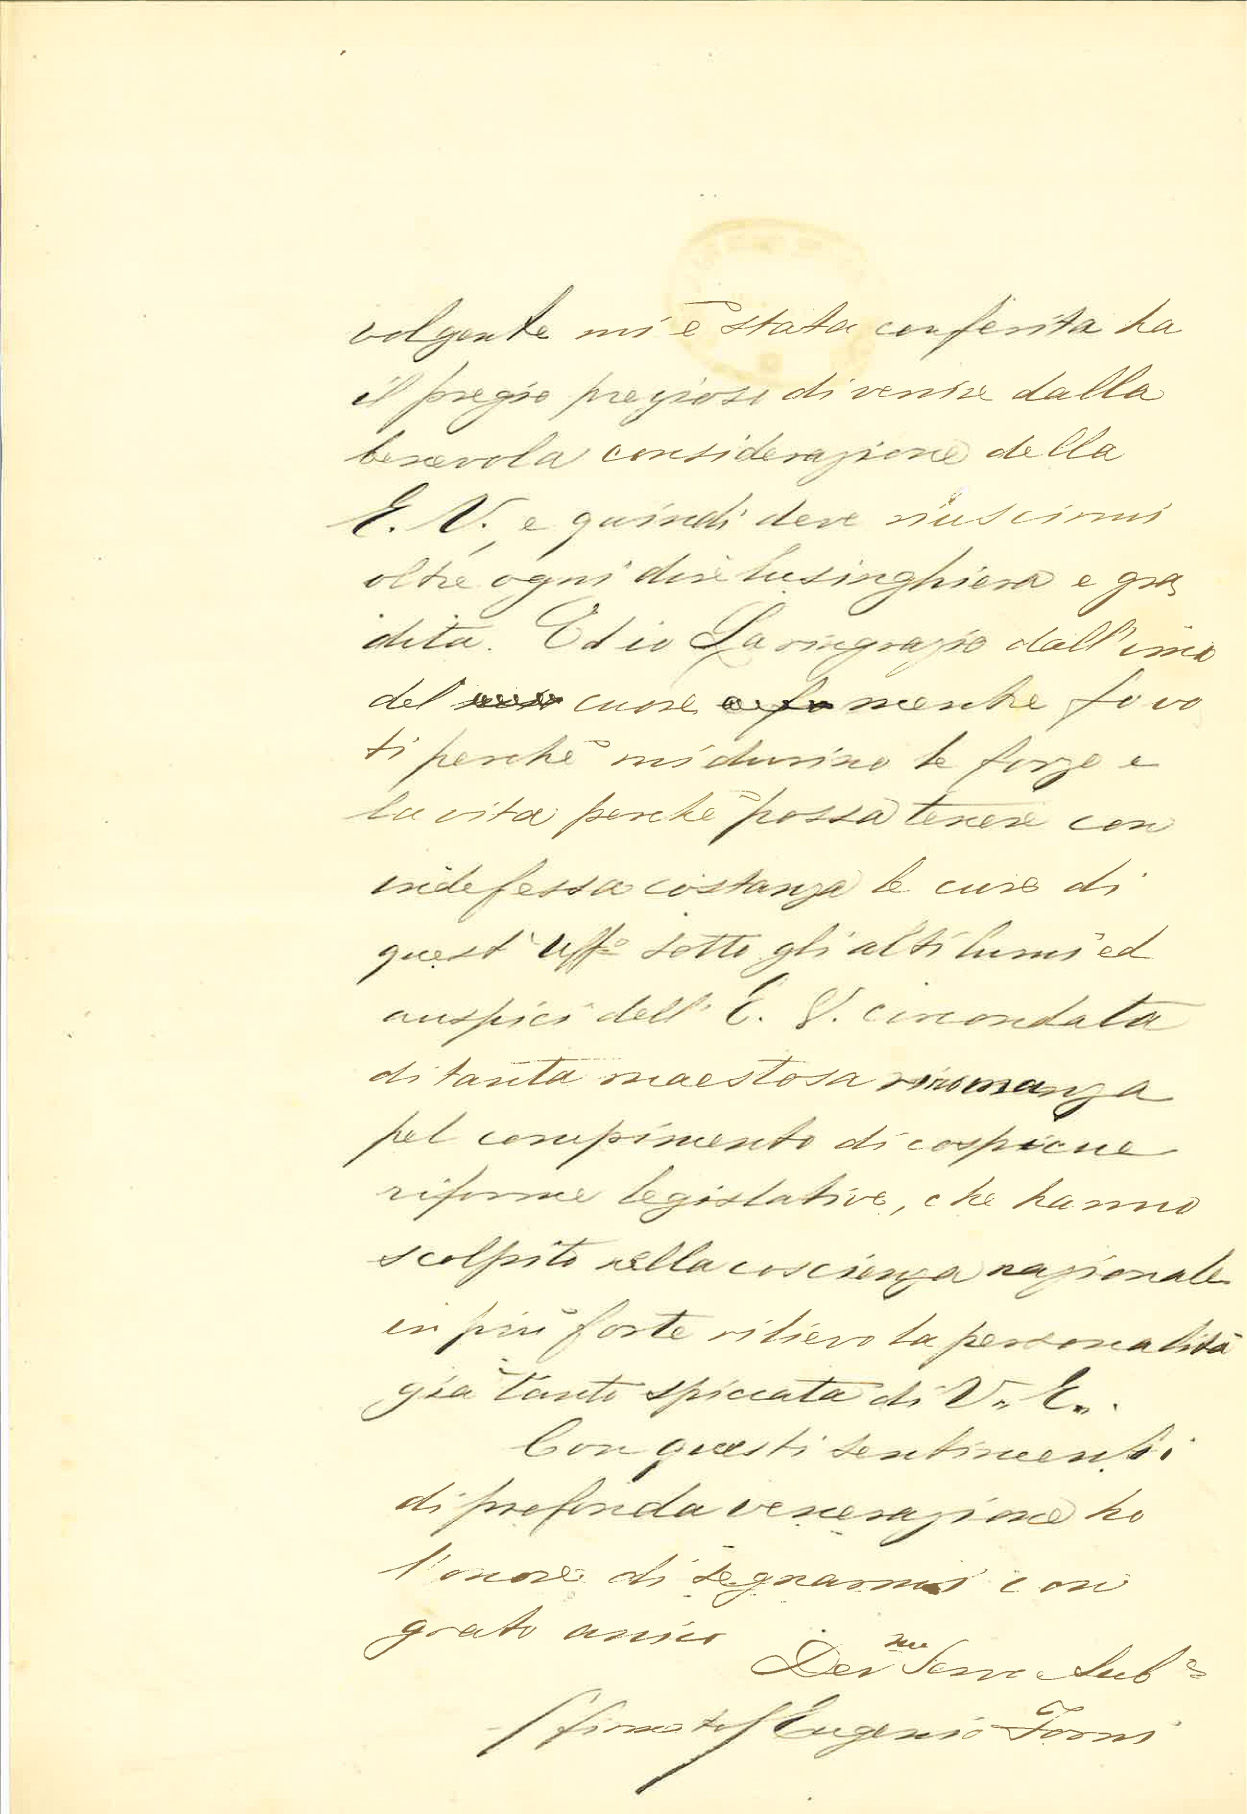 volgente mi è stata conferita ha
il pregio prezioso di venire dalla
benevola considerazione della
E. V., e quindi deve riuscirmi
oltre ogni dire lusinghiera e gra
dita. Ed io La ringrazio dall'imo
del cuore mentre fo vo
ti perchè mi durino le forze e
la vita perchè possa tenere con
indefessa costanza le cure di
quest'Uffo sotto gli alti lumi ed
auspici dell'E. V. circondata
di tanta maestosa rinomanza
pel compimento di cospicue
riforme legislative, che hanno
scolpito nella coscienza nazionale
in più forte rilievo la personalità
già tanto spiccata di V. E.
Con questi sentimenti
di profonda venerazione ho
l'onore di segnarmi con
grato animo
Devmo Servo Subo
(firmato) Eugenio Forni